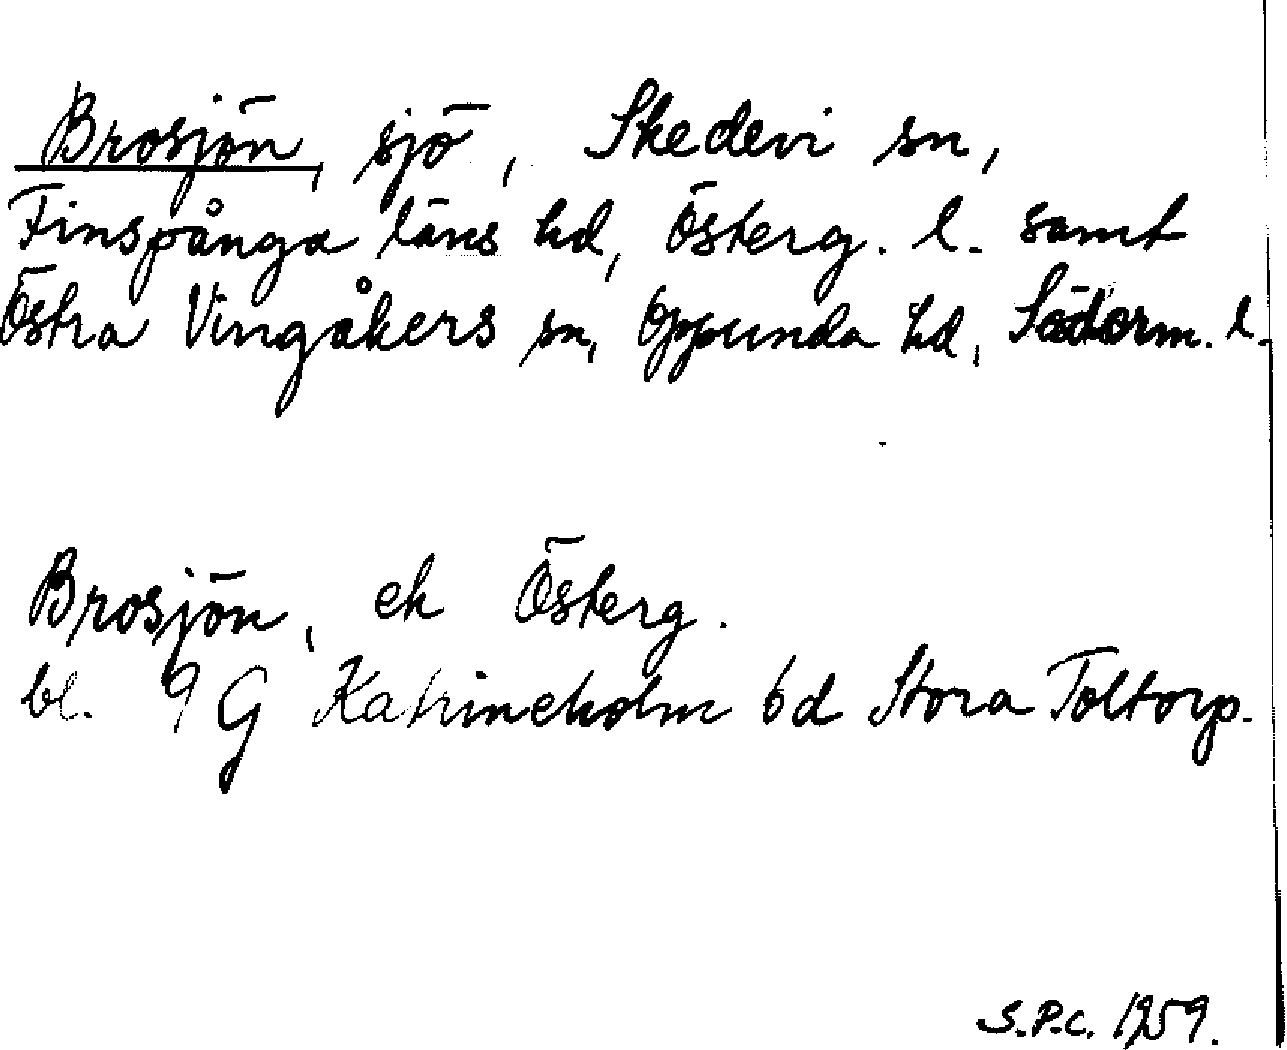 Brosjön, sjö, Skedevi sn,
Finspånga läns hd, Österg. l. samt
Östra Vingåkers sn, Oppunda hd, Söderm. l.
Brosjön, ek Österg.
bl. 9 G Katrineholm 6d Stora Toltorp.
S.P.C. 1959.